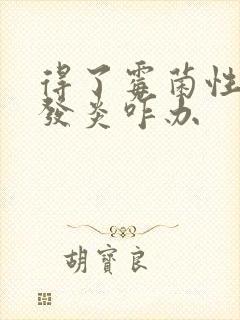 得了霉菌性
發炎咋办
胡寶良